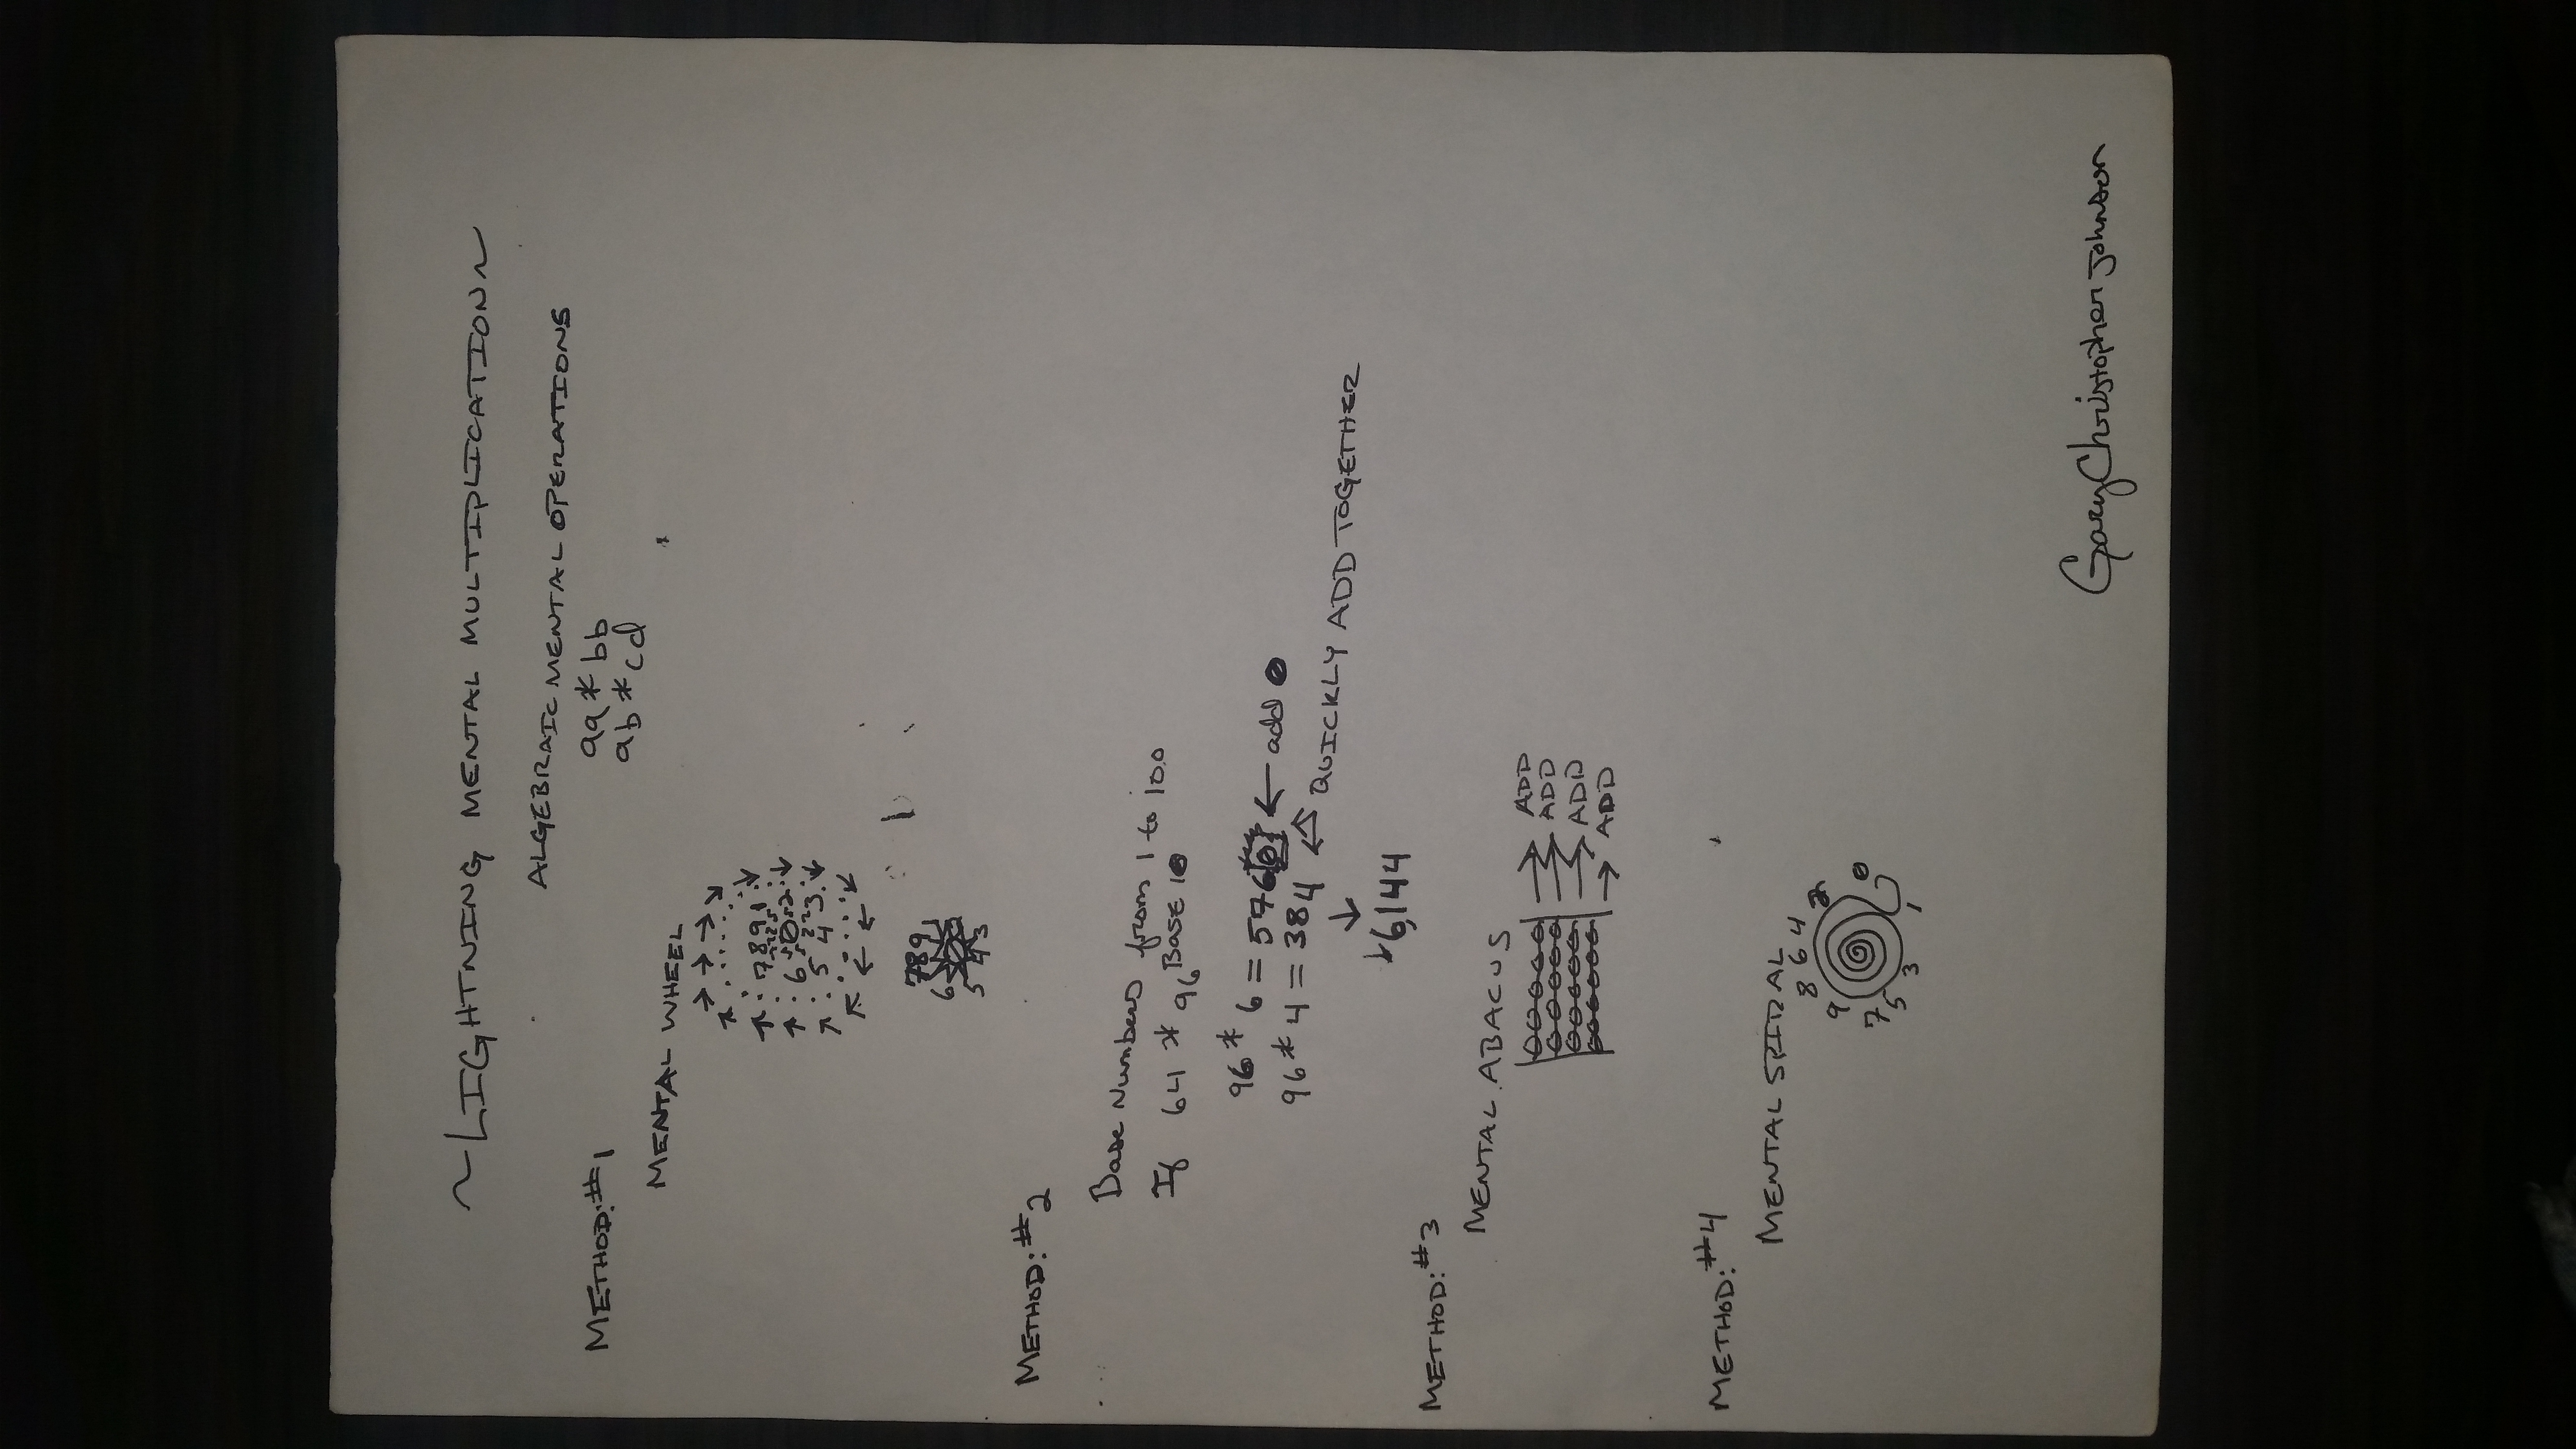 ~LIGHTNING MENTAL MULTIPLICATION~
ALGEBRAIC MENTAL OPERATIONS
METHOD:#1
aa * bb
ab * cd
MENTAL WHEEL
7 8 9 1
6 0 2
5 4 3
7 8 9 1
6
5 4 3
METHOD:#2
Base Numbers from 1 to 100
If 64 * 96 Base 10
96 * 6 = 5760 ← add 0
96 * 4 = 384 QUICKLY ADD TOGETHER
6,144
METHOD:#3
MENTAL ABACUS
ADD
ADD
ADD
ADD
METHOD:#4
MENTAL SPIRAL
8 6 4 2
9 0
7
5
3 1
Gary Christopher Johnson